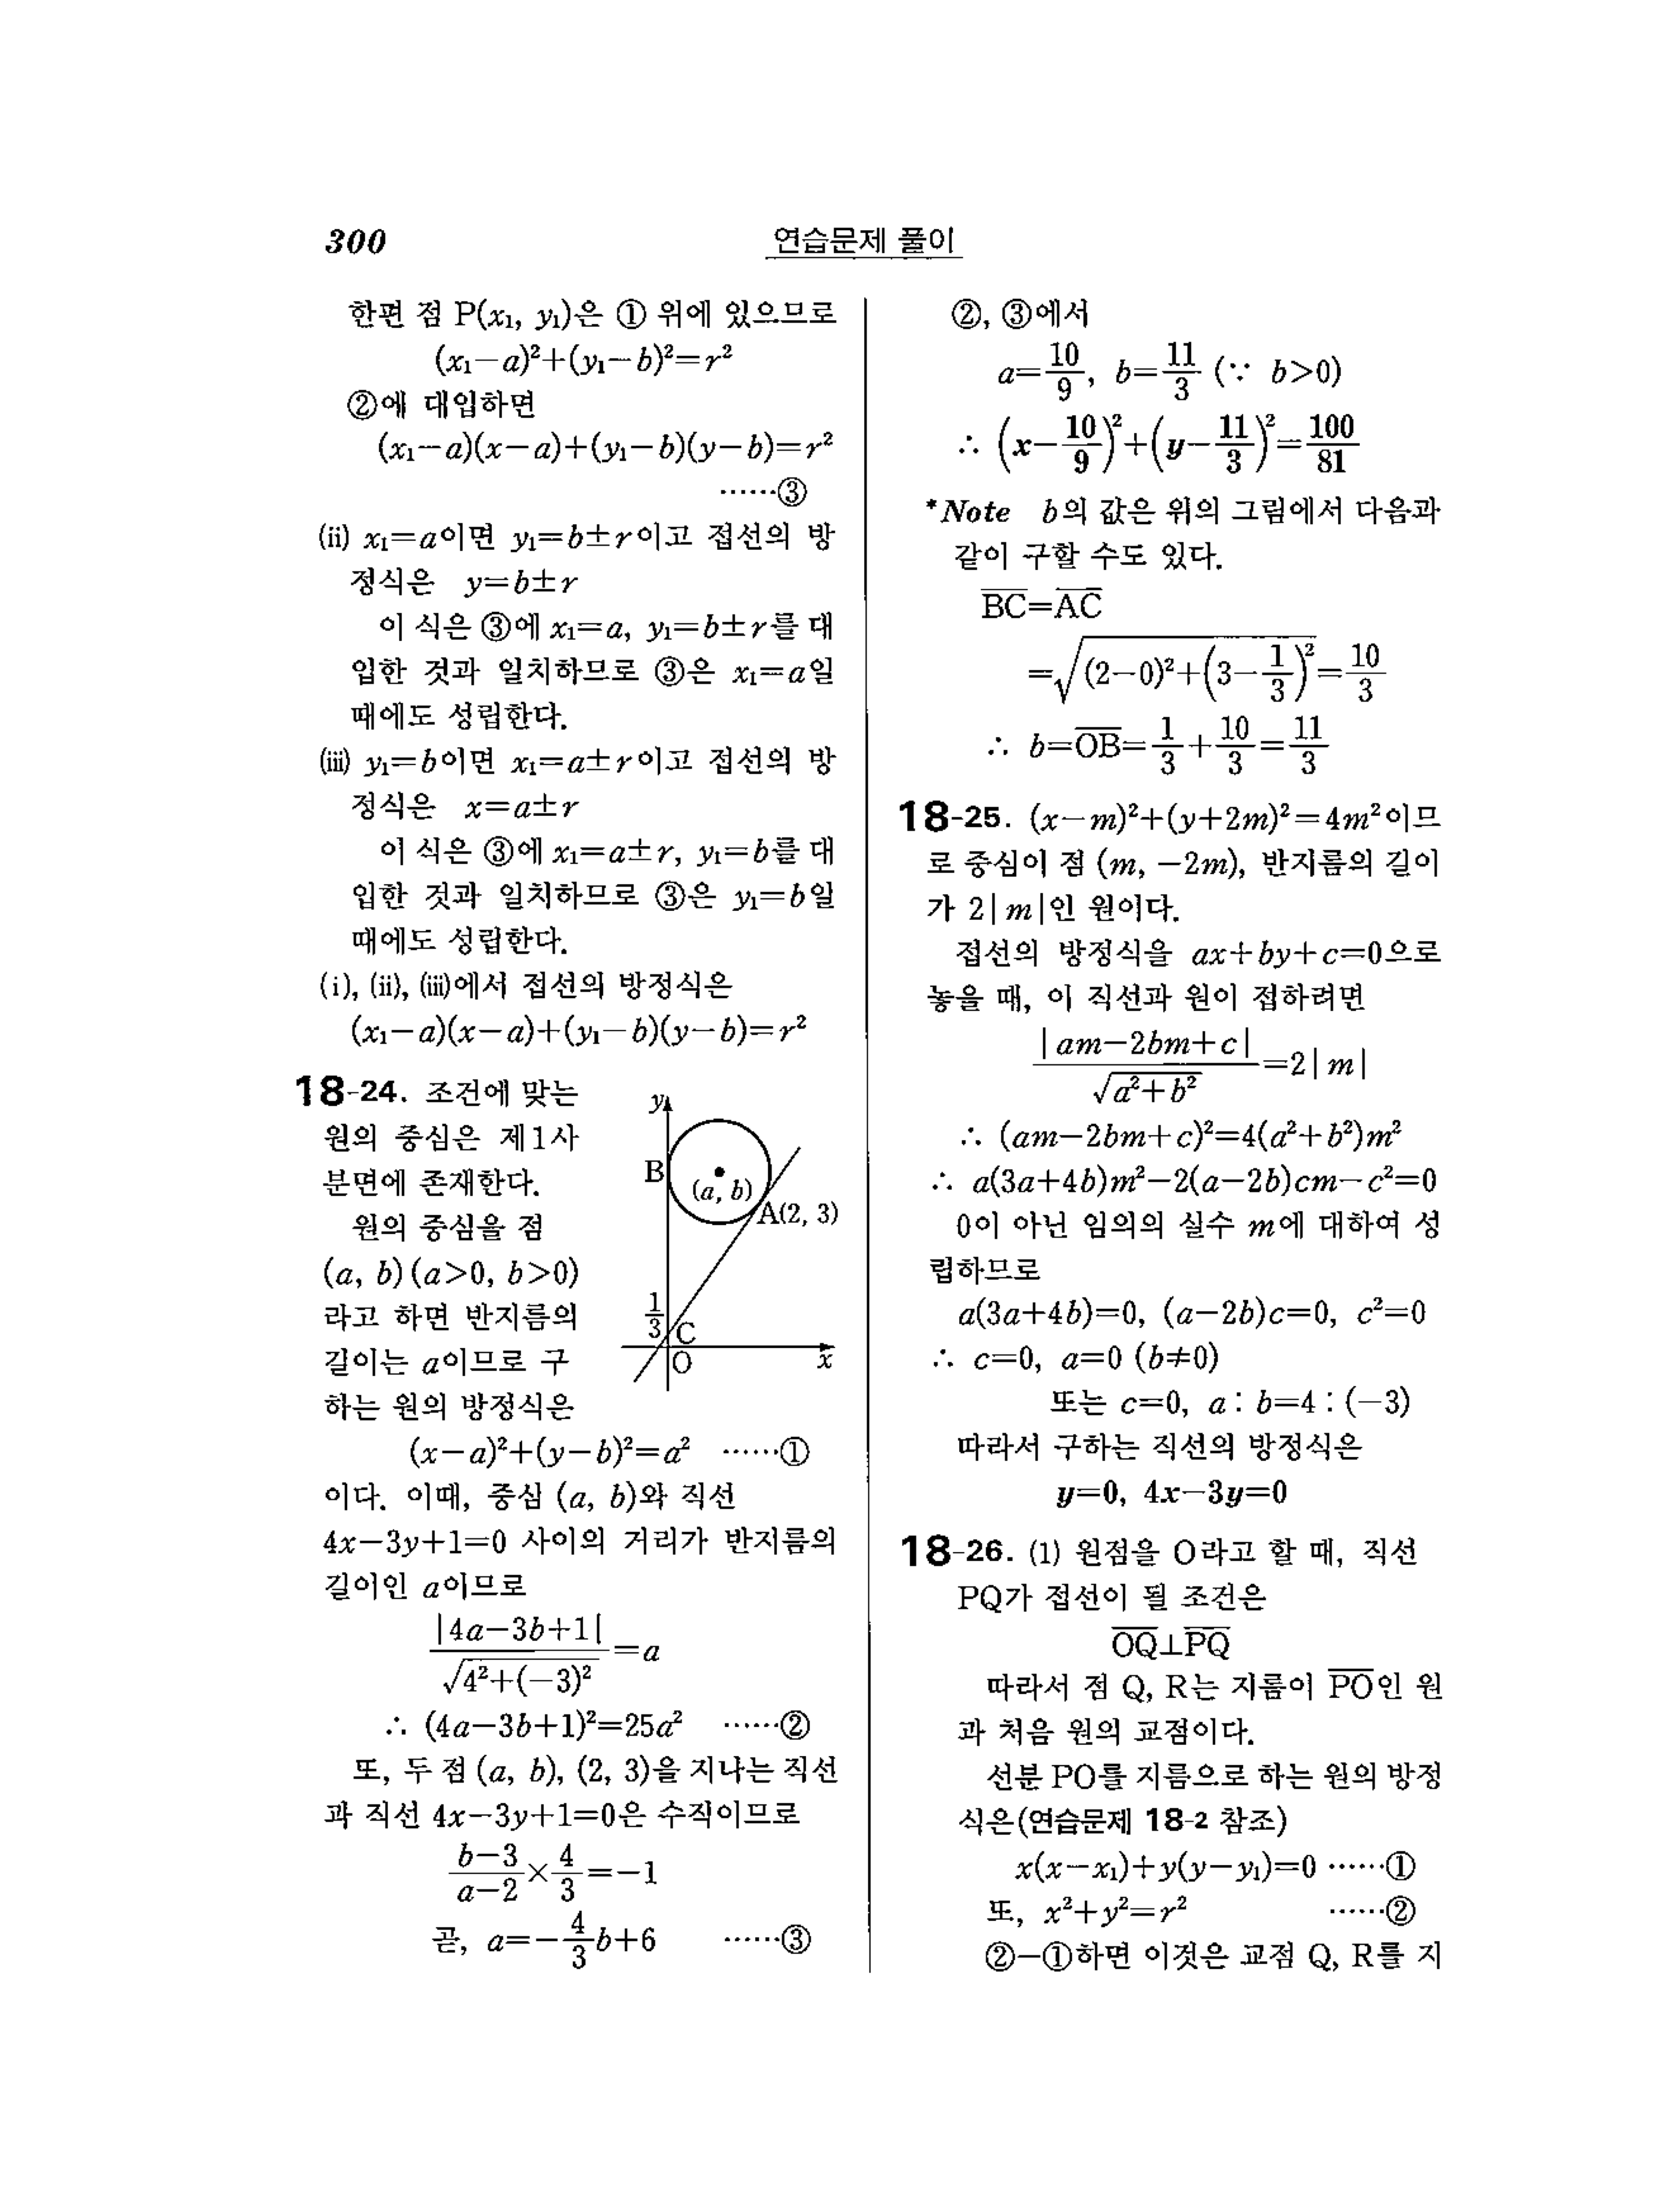 300
연습문제 풀이
한편 점 P(x₁, y₁)은 ① 위에 있으므로
(x₁-a)²+(y₁-b)²=r²
②에 대입하면
(x₁-a)(x-a)+(y₁-b)(y-b)=r²
……③
(ii) x₁=a이면 y₁=b±r이고 접선의 방
정식은 y=b±r
이 식은 ③에 x₁=a, y₁=b±r를 대
입한 것과 일치하므로 ③은 x₁=a일
때에도 성립한다.
(iii) y₁=b이면 x₁=a±r이고 접선의 방
정식은 x=a±r
이 식은 ③에 x₁=a±r, y₁=b를 대
입한 것과 일치하므로 ③은 y₁=b일
때에도 성립한다.
(i), (ii), (iii)에서 접선의 방정식은
(x₁-a)(x-a)+(y₁-b)(y-b)=r²
18-24. 조건에 맞는
원의 중심은 제1사
분면에 존재한다.
원의 중심을 점
(a, b)(a>0, b>0)
라고 하면 반지름의
길이는 a이므로 구
하는 원의 방정식은
y
B
(a, b)
A(2, 3)
1/3
C
O
x
(x-a)²+(y-b)²=a² ……①
이다. 이때, 중심 (a, b)와 직선
4x-3y+1=0 사이의 거리가 반지름의
길이인 a이므로
|4a-3b+1|/√(4²+(-3)²)=a
∴ (4a-3b+1)²=25a² ……②
또, 두 점 (a, b), (2, 3)을 지나는 직선
과 직선 4x-3y+1=0은 수직이므로
(b-3)/(a-2)×4/3=-1
곧, a=-4/3b+6 ……③
②, ③에서
a=10/9, b=11/3 (∵ b>0)
∴ (x-10/9)²+(y-11/3)²=100/81
*Note b의 값은 위의 그림에서 다음과
같이 구할 수도 있다.
B̅C̅=A̅C̅
=√((2-0)²+(3-1/3)²)=10/3
∴ b=O̅B̅=1/3+10/3=11/3
18-25. (x-m)²+(y+2m)²=4m²이므
로 중심이 점 (m, -2m), 반지름의 길이
가 2|m|인 원이다.
접선의 방정식을 ax+by+c=0으로
놓을 때, 이 직선과 원이 접하려면
|am-2bm+c|/√(a²+b²)=2|m|
∴ (am-2bm+c)²=4(a²+b²)m²
∴ a(3a+4b)m²-2(a-2b)cm-c²=0
0이 아닌 임의의 실수 m에 대하여 성
립하므로
a(3a+4b)=0, (a-2b)c=0, c²=0
∴ c=0, a=0 (b≠0)
또는 c=0, a : b=4 : (-3)
따라서 구하는 직선의 방정식은
y=0, 4x-3y=0
18-26. (1) 원점을 O라고 할 때, 직선
PQ가 접선이 될 조건은
O̅Q̅⊥P̅Q̅
따라서 점 Q, R는 지름이 P̅O̅인 원
과 처음 원의 교점이다.
선분 PO를 지름으로 하는 원의 방정
식은(연습문제 18-2 참조)
x(x-x₁)+y(y-y₁)=0 ……①
또, x²+y²=r² ……②
②-①하면 이것은 교점 Q, R를 지